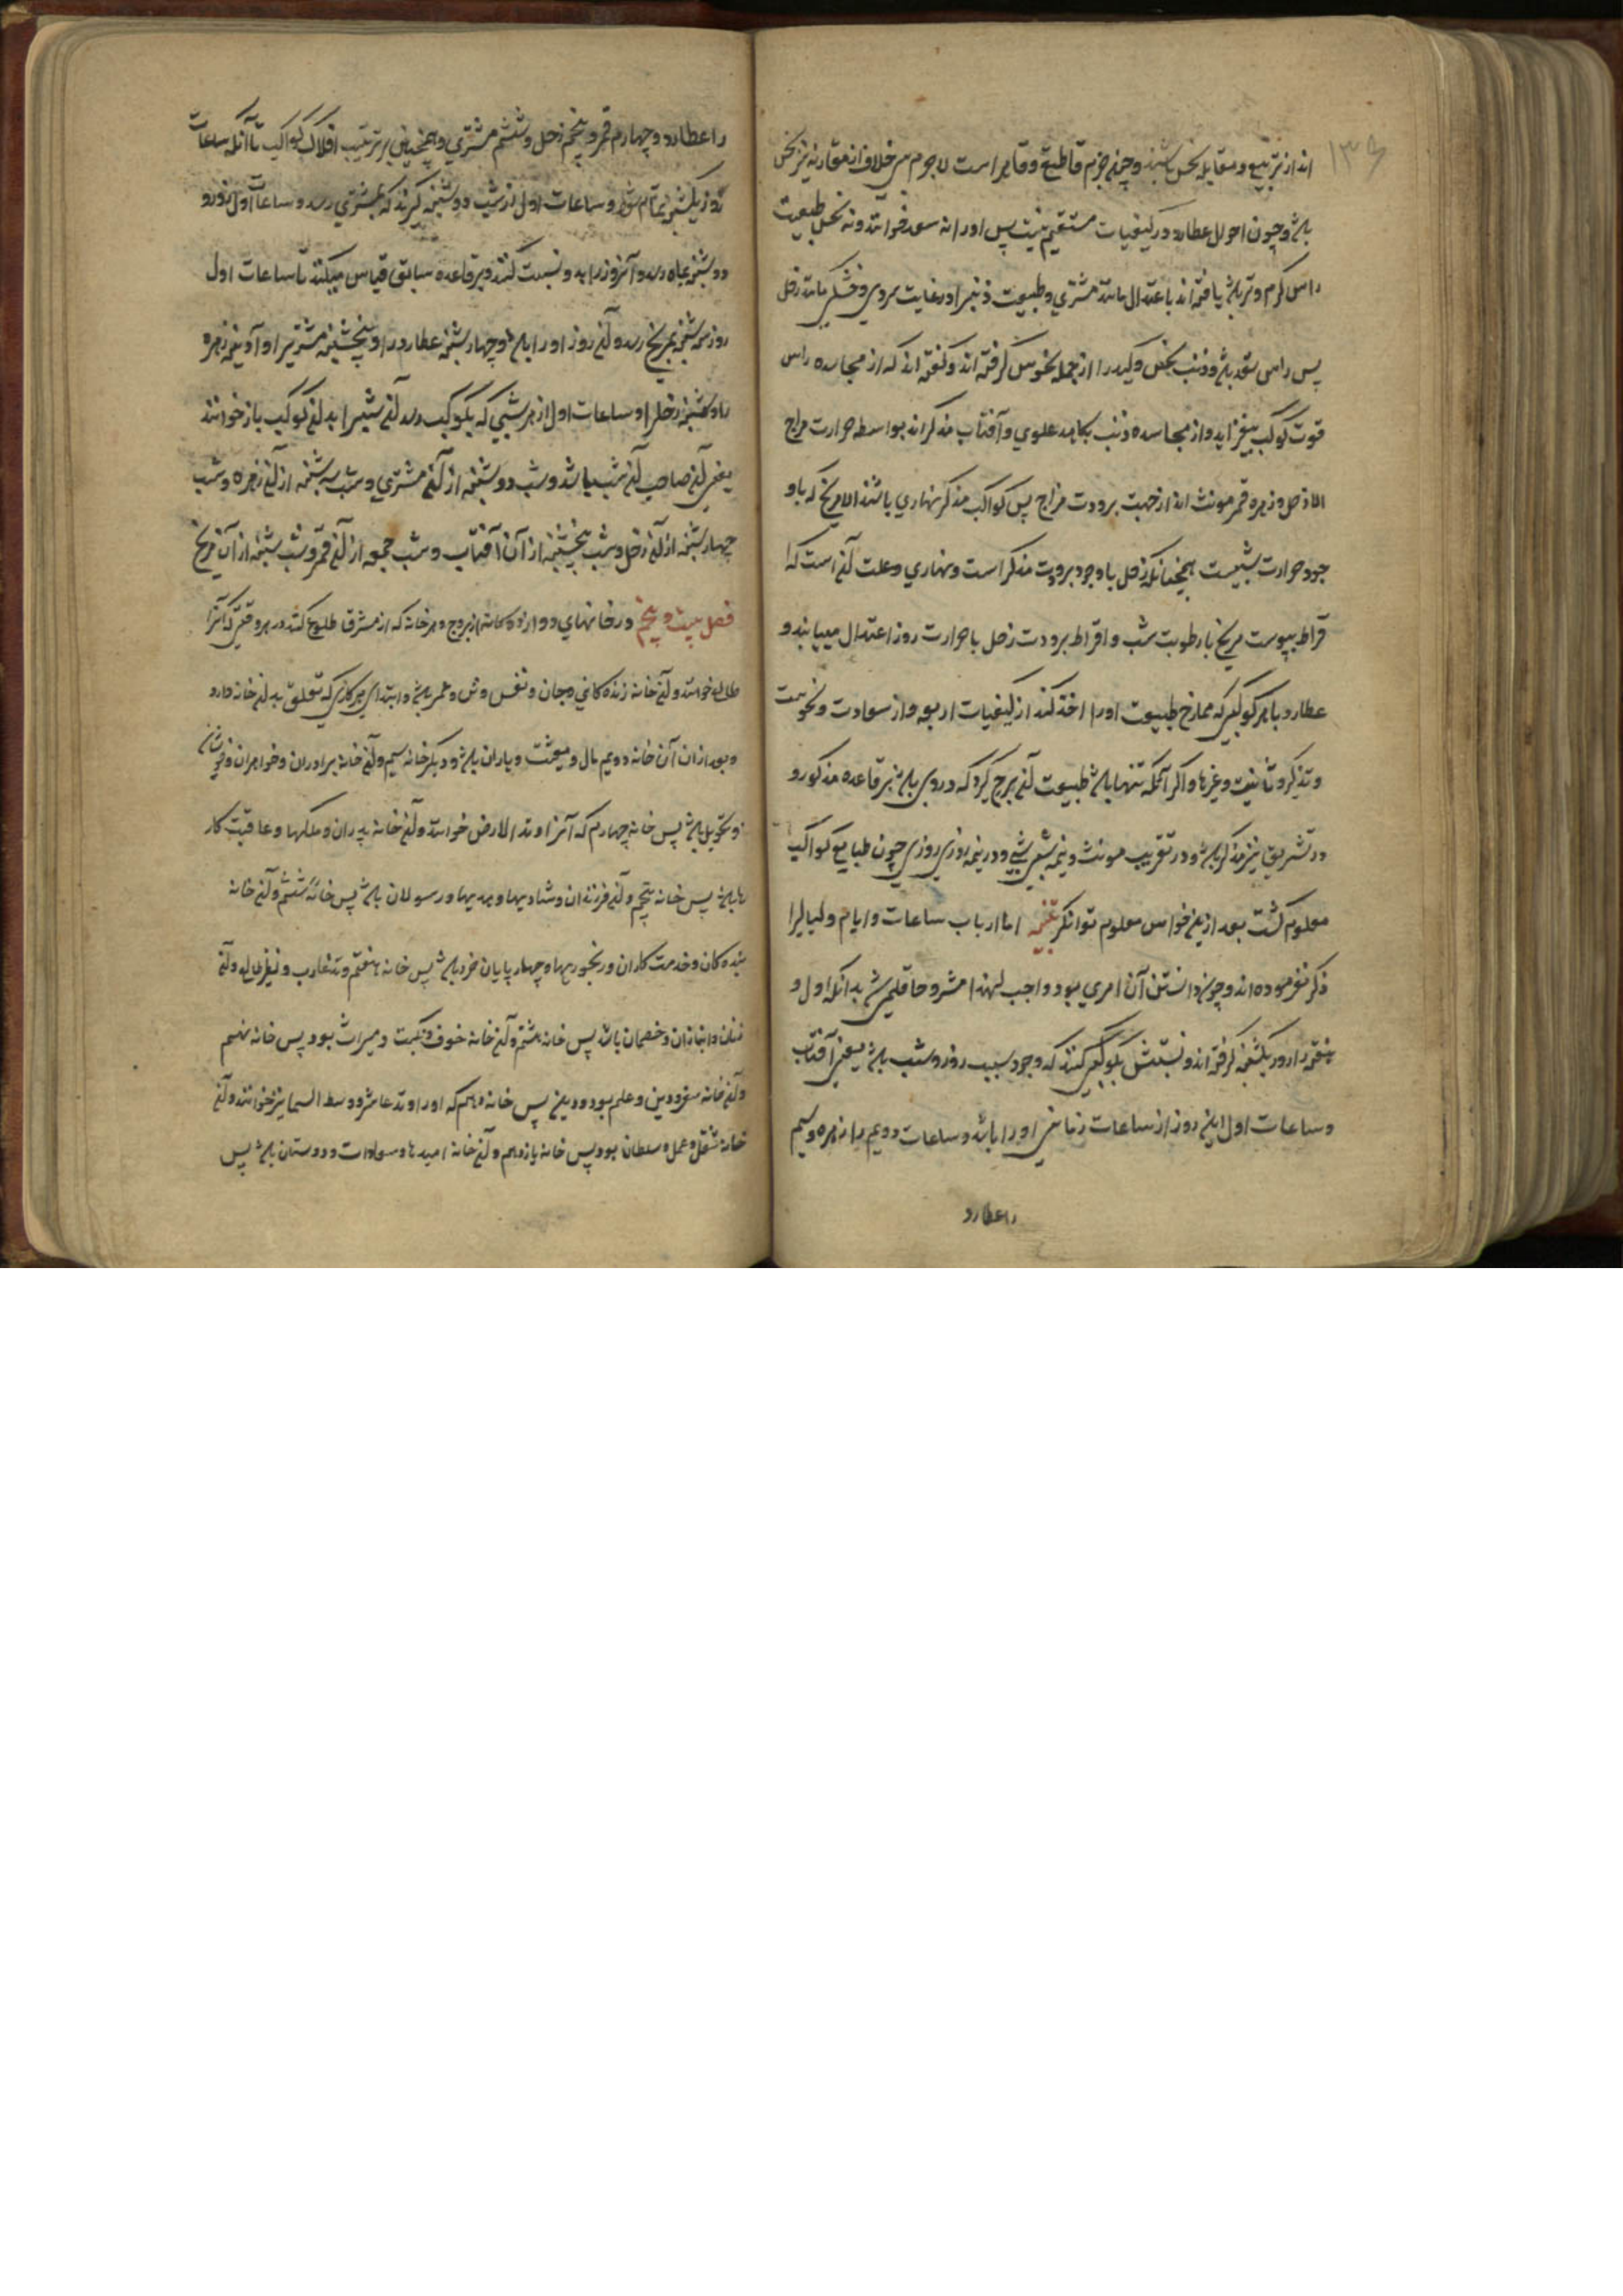 ۱۳۶
اند از تربیع و مقابله نحس باشند و چون جرم قاطع و قاهر است لاجرم خلاف از مقارنه نیز نحس
باشد و چون احوال عطارد در کیفیات مستقیم نیست پس او را نه سعد خوانند و نه نحس طبیعت
راس گرم و تر باشد یافته اند باعتدال مانند مشتری و طبیعت ذنب را در غایت سردی و خشکی مانند زحل
پس راس سعد باشد و ذنب نحس و کید را از جمله نحوس گرفته اند و گفته اند که از مجاسده راس
قوت کوکب بیفزاید و از مجاسده ذنب بکاهد علوی و آفتاب مذکر اند بواسطه حرارت مزاج
الا زحل و زهره و قمر مونث اند از جهت برودت مزاج پس کواکب مذکر نهاری باشند الا مریخ که باو
جود حرارت شبیست همچنانکه زحل با وجود برودت مذکر است و نهاری و علت آن است که
فراط یبوست مریخ با رطوبت شب و افراط برودت زحل با حرارت روز اعتدال مییابند و
عطارد با هر کوکبی که ممازج طبیعت او را اخذ کند از کیفیات اربعه و از سعادت و نحوست
و تذکیر و تانیث و غیرها و اگر آنکه تنها باشد طبیعت آن برج گیرد که در وی باشد بر قاعده مذکور و
در تشریق نیز مذکر باشد و در تغریب مونث و نیمه شبی شبی و در نیمه روزی روزی چون طبایع کواکب
معلوم گشت بعد از این خواص معلوم توان کرد تتمه اما ارباب ساعات و ایام و لیالی را
ذکر نفرموده اند و چون دانستن آن امری بود واجب لهذا مشروحا قلمی شد بدانکه اول و
هفته را روز یکشنبه گرفته اند و نسبتش بکوکبی کنند که وجود سبب روز و شب باشد یعنی آفتاب
و ساعات اول این روز از ساعات زمانی او را باشد و ساعات دویم را زهره و سیم
را عطارد
را عطارد و چهارم قمر و پنجم زحل و ششم مشتری و همچنین بر ترتیب افلاک کواکب تا آنکه ساعات
روز یکشنبه تمام شود و ساعات اول از شب دوشنبه گیرند که بمشتری رسد و ساعات اول روز
دوشنبه بماه رسد و آن روز را بدو نسبت کنند و بر قاعده سابق قیاس میکنند تا ساعات اول
روز سه شنبه بمریخ رسد و آن روز او را باشد و چهارشنبه عطارد را و پنجشنبه مشتری را و آدینه زهره
را و شنبه زحل را و ساعات اول از هر شبی که بکوکب رسد آن شب را بدان کوکب باز خوانند
یعنی آن صاحب آن شب باشد و شب دوشنبه از آن مشتری و شب سه شنبه از آن زهره و شب
چهارشنبه از آن زحل و شب پنجشنبه از آن آفتاب و شب جمعه از آن قمر و شب شنبه از آن مریخ
فصل بیست و پنجم در خانهای دوازده کانه از بروج و هر خانه که از مشرق طلوع کند در هر وقتی که آنرا
طالع خوانند و آن خانه زنده کانی و جان و نفس و تن و عمر باشد و ابتدای هر کاری که تعلق بدان خانه دارد
و بعد از آن آن خانه دویم مال و معیشت و یاران باشد و دیگر خانه سیم و آن خانه برادران و خواهران و خویشان
و تحویل باشد پس خانه چهارم که آنرا وتد الارض خوانند و آن خانه پدران و ملکها و عاقبت کار
ها باشد پس خانه پنجم و آن فرزندان و شادیها و هدیها و رسولان باشد پس خانه ششم و آن خانه
بنده کان و خدمت کاران و رنجوریها و چهار پایان خرد باشد پس خانه هفتم وتد غارب و نظیر طالع و آن
زنان و انبازان و خصمان باشد پس خانه هشتم و آن خانه خوف و نکبت و میراث بود پس خانه نهم
و آن خانه سفر و دین و علم بود پس خانه دهم که او را وتد عاشر و وسط السما نیز خوانند و آن
خانه شغل و عمل و سلطان بود پس خانه یازدهم و آن خانه امیدها و سعادات و دوستان باشد پس